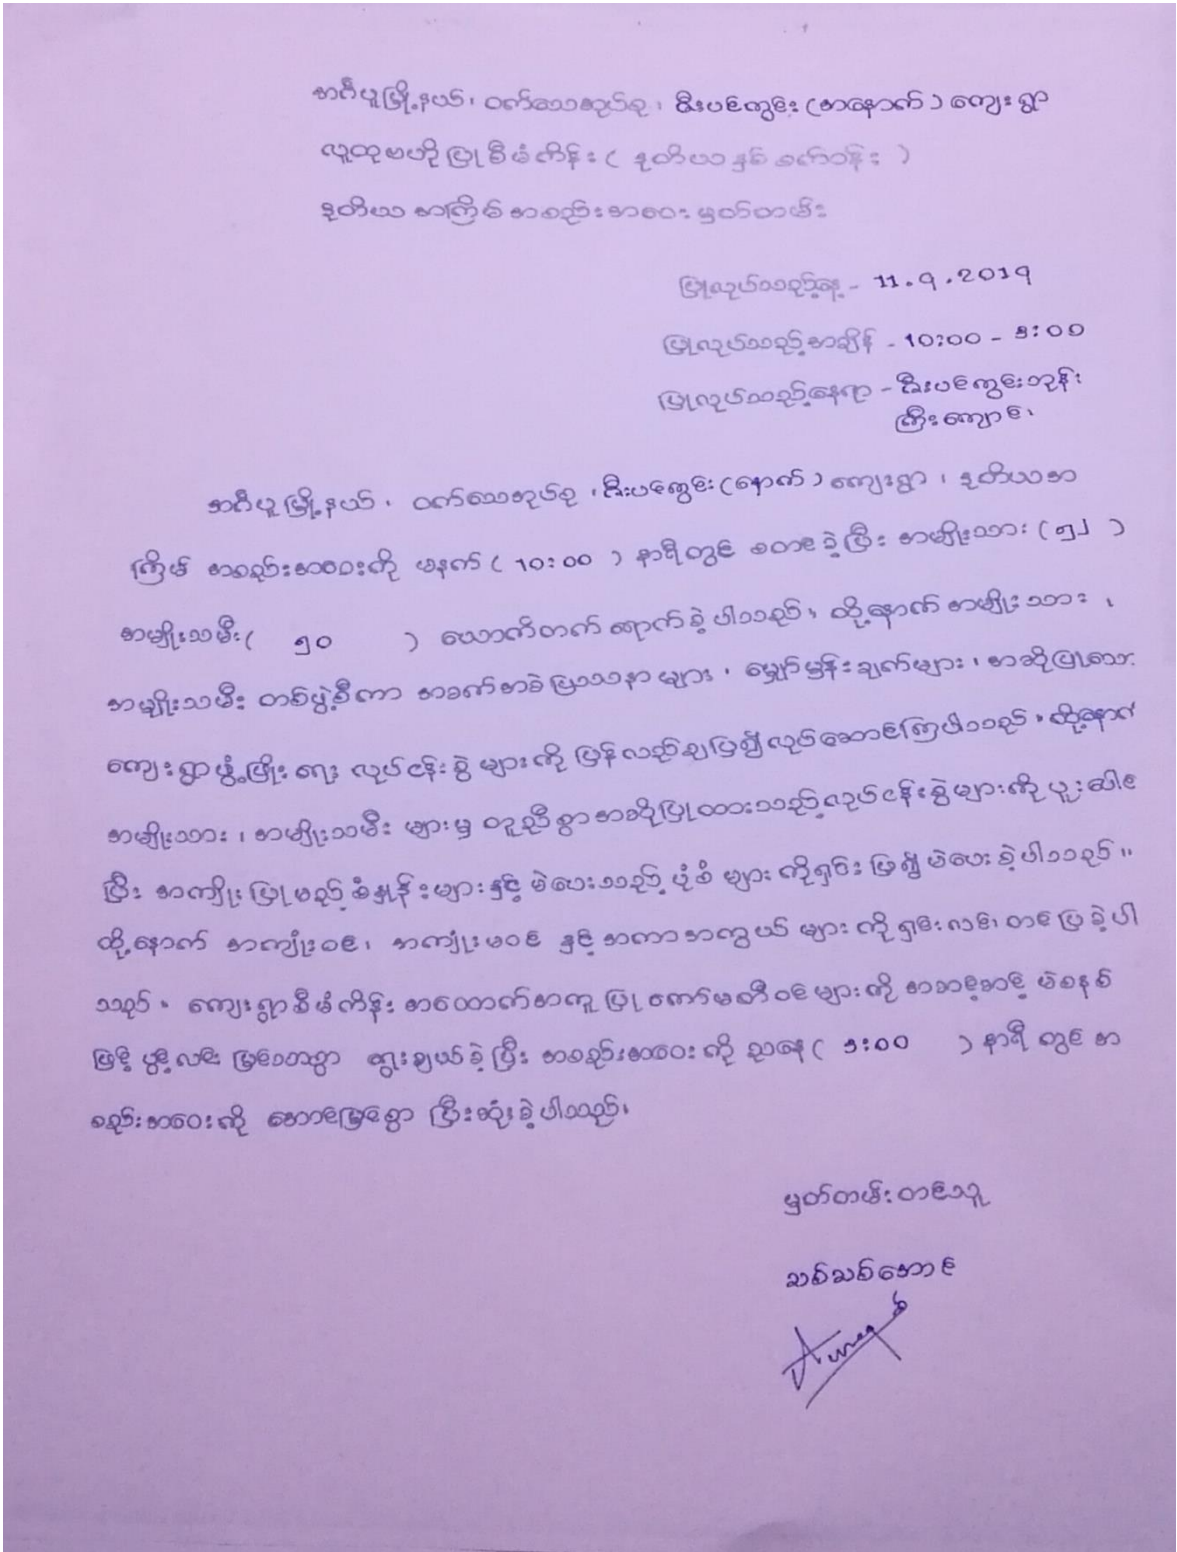 အင်္ဂပူမြို့နယ်၊ ဝက်သေအုပ်စု၊ ဆီးပင်ကွင်း (အနောက်) ကျေးရွာ
လူထုဗဟိုပြုစီမံကိန်း ( ဒုတိယနှစ်စက်ဝန်း )
ဒုတိယအကြိမ် အစည်းအဝေး မှတ်တမ်း
ပြုလုပ်သည့်နေ့ - 11.9.2019
ပြုလုပ်သည့်အချိန် - 10:00 - 3:00
ပြုလုပ်သည့်နေရာ - ဆီးပင်ကွင်းဘုန်း
ကြီးကျောင်း
အင်္ဂပူမြို့နယ်၊ ဝက်သေအုပ်စု၊ ဆီးပင်ကွင်း (နောက်) ကျေးရွာ၊ ဒုတိယအ
ကြိမ် အစည်းအဝေးကို မနက် ( 10:00 ) နာရီတွင် စတင်ခဲ့ပြီး အမျိုးသား ( ၅၂ )
အမျိုးသမီး ( ၅၀ ) ယောက်တက်ရောက်ခဲ့ပါသည်။ ထို့နောက် အမျိုးသား ၊
အမျိုးသမီး တစ်ဖွဲ့စီကာ အခက်အခဲပြဿနာများ ၊ မျှော်မှန်းချက်များ ၊ အဆိုပြုထား
ကျေးရွာဖွံ့ဖြိုးရေး လုပ်ငန်းခွဲများကို ပြန်လည်ချပြ၍ လုပ်ဆောင်ကြပါသည်။ ထို့နောက်
အမျိုးသား ၊ အမျိုးသမီးများမှ တူညီစွာအဆိုပြုထားသည့် လုပ်ငန်းခွဲများကို ပူးပေါင်း
ပြီး အကျိုးပြုမည့်စံနှုန်းများနှင့် မဲပေးသည့်ပုံစံများကိုရှင်းပြ၍ မဲပေးခဲ့ပါသည်။
ထို့နောက် အကျုံးဝင်၊ အကျုံးမဝင် နှင့် အကာအကွယ်များကို ရှင်းလင်းတင်ပြခဲ့ပါ
သည်။ ကျေးရွာစီမံကိန်း အထောက်အကူပြုကော်မတီဝင်များကို အဆင့်ဆင့် မဲစနစ်
ဖြင့် ပွင့်လင်းမြင်သာစွာ ရွေးချယ်ခဲ့ပြီး အစည်းအဝေးကို ညနေ ( 3:00 ) နာရီတွင် အ
စည်းအဝေးကို အောင်မြင်စွာ ပြီးဆုံးခဲ့ပါသည်။
မှတ်တမ်းတင်သူ
သစ်သစ်အောင်